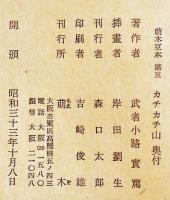 萌木豆本 第三
カチカチ山 奥付
著作者 武者小路實篤
挿畫者 岸田劉生
刊行者 森口太郎
印刷者 吉崎俊雄
刊行所 萌木
大阪市東区高麗橋五ノ四三
電話 大阪 四一五八〇
振替 大阪 二二〇四八
開頒 昭和三十三年十月八日